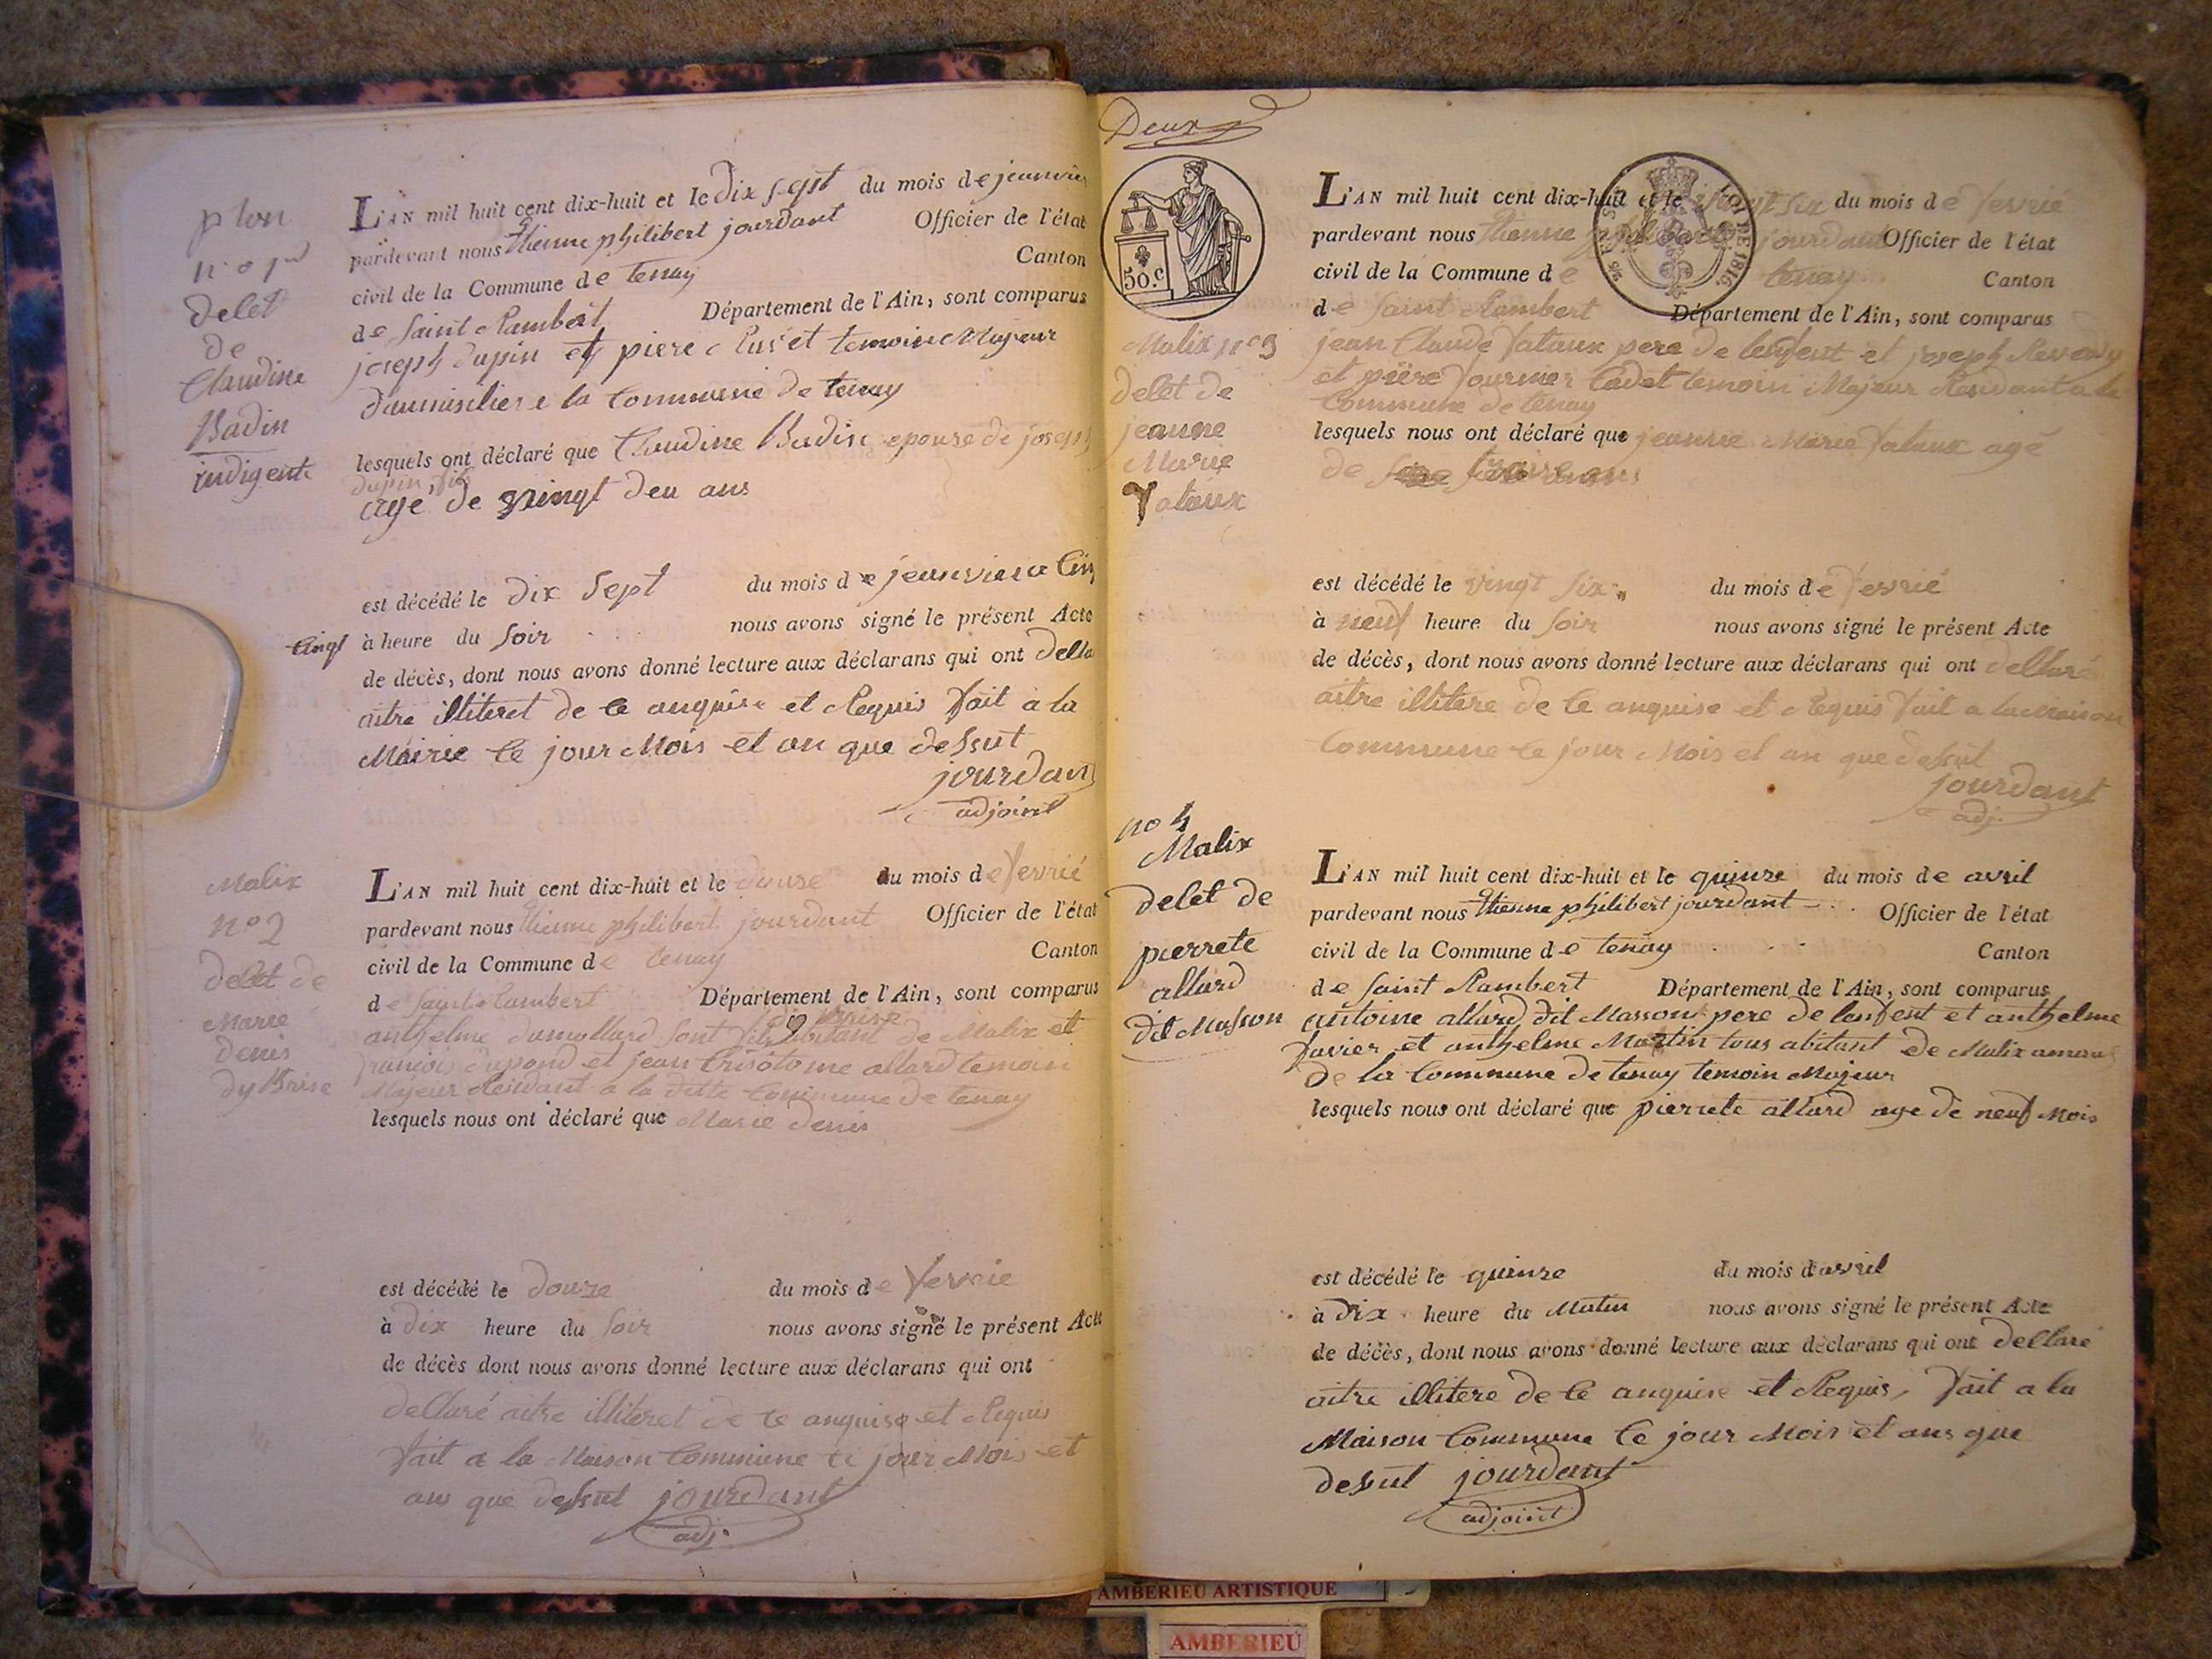 plon
n.o 1er
delet
de
Claudine
Badin
indigente
L'AN mil huit cent dix-huit et le dix sept du mois de jeanvier
pardevant nous Etienne philibert jourdant Officier de l'état
civil de la Commune de tenay Canton
de Saint Rambert Département de l'Ain, sont comparus
joseph dupin et piere temoin Majeur
la Commune de tenay
lesquels ont déclaré que Claudine Badin epouse de joseph
dupin
age de vingt deu ans
est décédé le dix Sept du mois de jeanvier a Cinq
Cinq à heure du Soir nous avons signé le présent Acte
de décès, dont nous avons donné lecture aux déclarans qui ont della
aitre illiteret de ce anquise et Requis fait a la
Mairie le jour Mois et an que dessut
jourdant
adjoint
Malix
n° 2
delet de
Marie
denis
dy Brise
L'AN mil huit cent dix-huit et le douze du mois de fevrié
pardevant nous Etienne philibert jourdant Officier de l'état
civil de la Commune de tenay Canton
de Saint Rambert Département de l'Ain, sont comparus
anthelme dumollard de Malix et
françois dupond et jean Crisotome allard temoin
Majeur Resident a la ditte Commune de tenay
lesquels nous ont déclaré que Marie denis
est décédé le douze du mois de fevrie
à dix heure du Soir nous avons signé le présent Acte
de décès dont nous avons donné lecture aux déclarans qui ont
dellaré aitre illiteret de ce anquise et Requis
fait a la Maison Commune le jour Mois et
ans que dessut jourdant
adj.
Deux
50.c
LOI DE 1816.
Malix n° 3
delet de
jeanne
Marie
Vataux
L'AN mil huit cent dix-huit et le vingt six du mois de fevrié
pardevant nous Etienne philibert jourdant Officier de l'état
civil de la Commune de tenay Canton
de Saint Rambert Département de l'Ain, sont comparus
jean Claude Vataux pere de lenfent et joseph
et pierre fournier Cadet temoin Majeur Residant a la
Commune de tenay
lesquels nous ont déclaré que jeanne Marie Vataux agé
de
est décédé le vingt six du mois de fevrié
à neuf heure du Soir nous avons signé le présent Acte
de décès, dont nous avons donné lecture aux déclarans qui ont dellaré
aitre illitere de ce anquise et Requis fait a la Maison
Commune le jour Mois et an que dessut
jourdant
adj.
no 4
Malix
delet de
pierrete
allard
dit Masson
L'AN mil huit cent dix-huit et le quinze du mois de avril
pardevant nous Etienne philibert jourdant Officier de l'état
civil de la Commune de tenay Canton
de Saint Rambert Département de l'Ain, sont comparus
antoine allard dit Masson pere de lenfent et anthelme
favier et anthelme Martin tous abitant de Malix
de la Commune de tenay temoin Majeur
lesquels nous ont déclaré que pierrete allard age de neuf Mois
est décédé le quinze du mois d'avril
à dix heure du Matin nous avons signé le présent Acte
de décès, dont nous avons donné lecture aux déclarans qui ont dellaré
aitre illitere de ce anquise et Requis, fait a la
Maison Commune le jour Mois et ans que
dessut jourdant
adjoint
AMBERIEU ARTISTIQUE
AMBERIEU